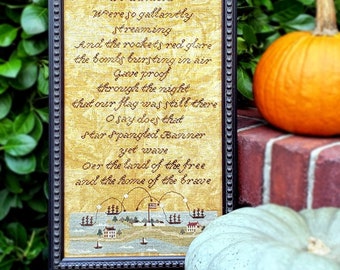 Were so gallantly
streaming
And the rockets red glare
the bombs bursting in air
Gave proof
through the night
that our flag was still there
O say does that
Star Spangled Banner
yet wave
Oer the land of the free
and the home of the brave